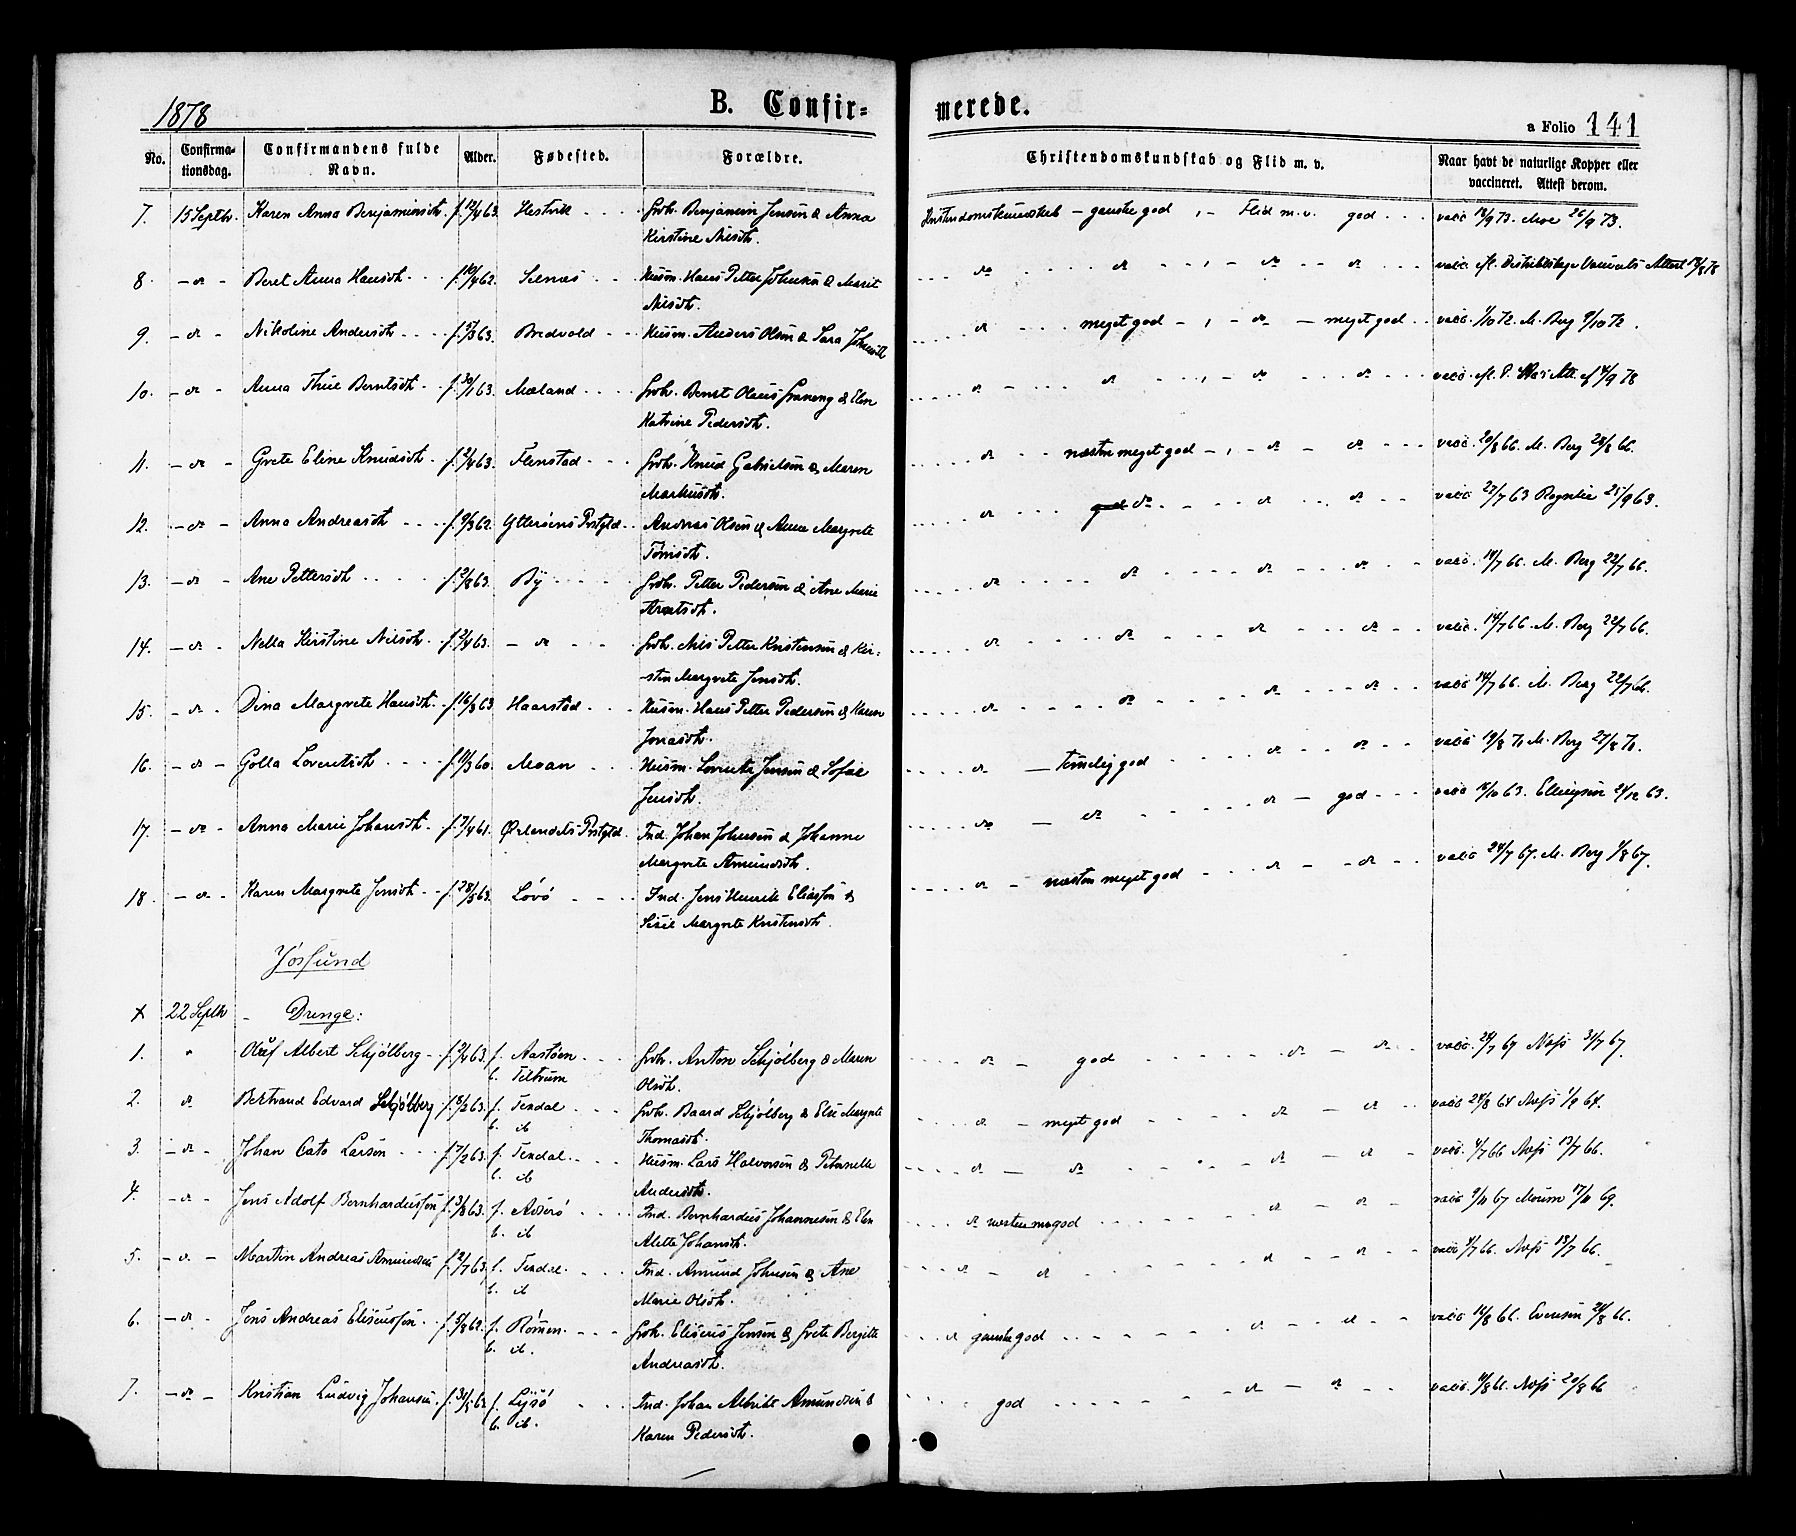 1878
B. Confir-
merede.
a Folio 141
No. Confirma-tionsdag. Confirmandens fulde Navn. Alder. Fødested. Forældre. Christendomskundskab og Flid m. v. Naar havt de naturlige Kopper eller vaccineret. Attest derom.
7. 15 Septbr. Karen Anna Benjaminsdtr. f. 12/4 63. Hestvik Grbr. Benjamin Jensen & Anna Christendomskundskab - ganske god, - Flid m.v. god vacc. 18/9 73. Moe 26/9 73.
Kirstine Nilsdtr.
8. - do - Beret Anna Hansdtr. f. 10/4 62. Selnæs Husm. Hans Petter Johnsen & Marit do do - do - do vacc. efl. Distriktslæge Attest
Nilsdtr.
9. - do - Nikoline Andersdtr. Bredvold Husm. Anders Olsen & Sara Johnsdtr do meget god -, - do - meget god vacc. 1/10 72. M. Berg 9/10 72.
10. - do - Anna Thue Berntsdtr. f. 30/1 63. Mæland Grbr. Bernt Olaus Graneng & Elen do do do do vacc. efl. P. Att. af 14/9 78
Katrine Pedersdtr.
11. - do - Grete Eline Knudsdtr. f. 2/4 63. Flenstad Grbr. Knud Gabrielsen & Maren do næsten meget god -, - do - do vacc. 20/8 66. M. Berg 28/8 66.
Markusdtr.
12. - do - Anna Andreasdtr. f. 9/3 62. Ytterøens Prstgld. Andreas Olsen & Anna Margrete do god do do do vacc 27/7 63 21/9 63.
Tønisdtr.
13. - do - Ane Pettersdtr f. 2/8 63. By Grbr. Petter Pedersen & Ane Marie do do do do vacc. 14/7 66. M. Berg 22/7 66.
Arntsdtr.
14. - do - Nella Kirstine Nilsdtr. f. 2/4 63. - do - Grbr. Nils Petter Kristensen & Kir- do do do do vacc. 14/7 66. M. Berg 22/7 66.
-stin Margrete Jensdtr.
15. - do - Dina Margrete Hansdtr. f. 16/8 63 Haarstad Husm. Hans Petter Pedersen & Karen do do do do vacc 14/7 66. M. Berg 22/7 66.
Jonasdtr.
16. - do - Golla Lorentsdtr f. 11/3 60. Moan Husm. Lorents Jensen & Sofie do - temelig god do do vacc 19/8 70 M. Berg 27/8 70.
Jensdtr.
17. - do - Anna Marie Johansdtr. f. 7/4 61. Ørlandets Prstgld. Ind. Johan Johnsen & Johanna do - do do - god vacc 18/10 63. Ellingsen 24/12 63.
Margrete Amundsdtr.
18. - do - Karen Margrete Jensdtr. f. 28/5 63. Løvø Ind. Jens Henrik Eliassøn & do - næsten meget god do do vacc 24/7 67. M. Berg 1/8 67.
Margrete Kristensdtr.
Jøssund
x 22 Septbr - Drenge:
1. " Oluf Albert Schjølberg f. 2/4 63. f. Aastøen Grbr. Anton Schjølberg & Maren do - god do - do vacc. 24/7 67 Næss 31/7 67.
b. Teltrum Olsdtr.
2. do Bertrand Edvard Schjølberg f. 18/2 63. f. Texdal Grbr. Baard Schjølberg & Else Margrete do - meget god do - do vacc 24/8 64 Næss 1/9 64.
b. ib Thomasdtr.
3. - do - Johan Cato Larsen f. 7/2 63. f. Texdal Husm. Lars Halvorsen & Petornelle do - do do - do vacc. 4/7 66 Næss 13/7 66.
b. ib Andersdtr.
4. - do - Jens Adolf Bernhardussøn f. 3/8 63. f. Asserø Ind. Bernhardus Johannesen & Elen do næsten m. god do - do vacc 9/11 67
b. ib Alette Johansdtr.
5. - do - Martin Andreas Amundsen f. 2/7 63. f. Texdal Ind. Amund Johnsen & Ane do - do do - do vacc 4/7 66. Næss 13/7 66.
b. ib Marie Olsdtr.
6. - do - Jens Andreas Eliseussøn f. 5/8 62. f. Rømen Grbr. Eliseus Jensen & Grete Bergitte do ganske god do - do vacc 14/8 66. Evensen 24/8 66.
b. ib. Andreasdtr.
7. - do - Kristian Ludvig Johansen. f. Lysø Ind. Johan Albrikt Amundsen & god do - do vacc. 11/8 66. Næss 20/8 66
b. ib. Karen Pedersdtr.